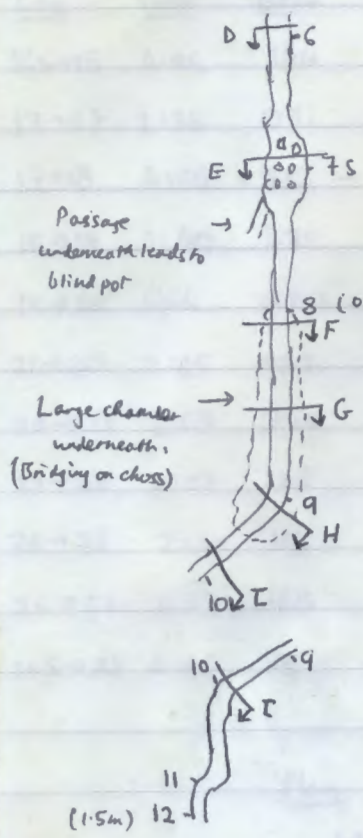 D 6
E 7 S
Passage
underneath leads to
blind pot
8
F
G
Large chamber
underneath.
(Bridging on choss)
9
H
10 I
10 9
I
11
(1.5m) 12